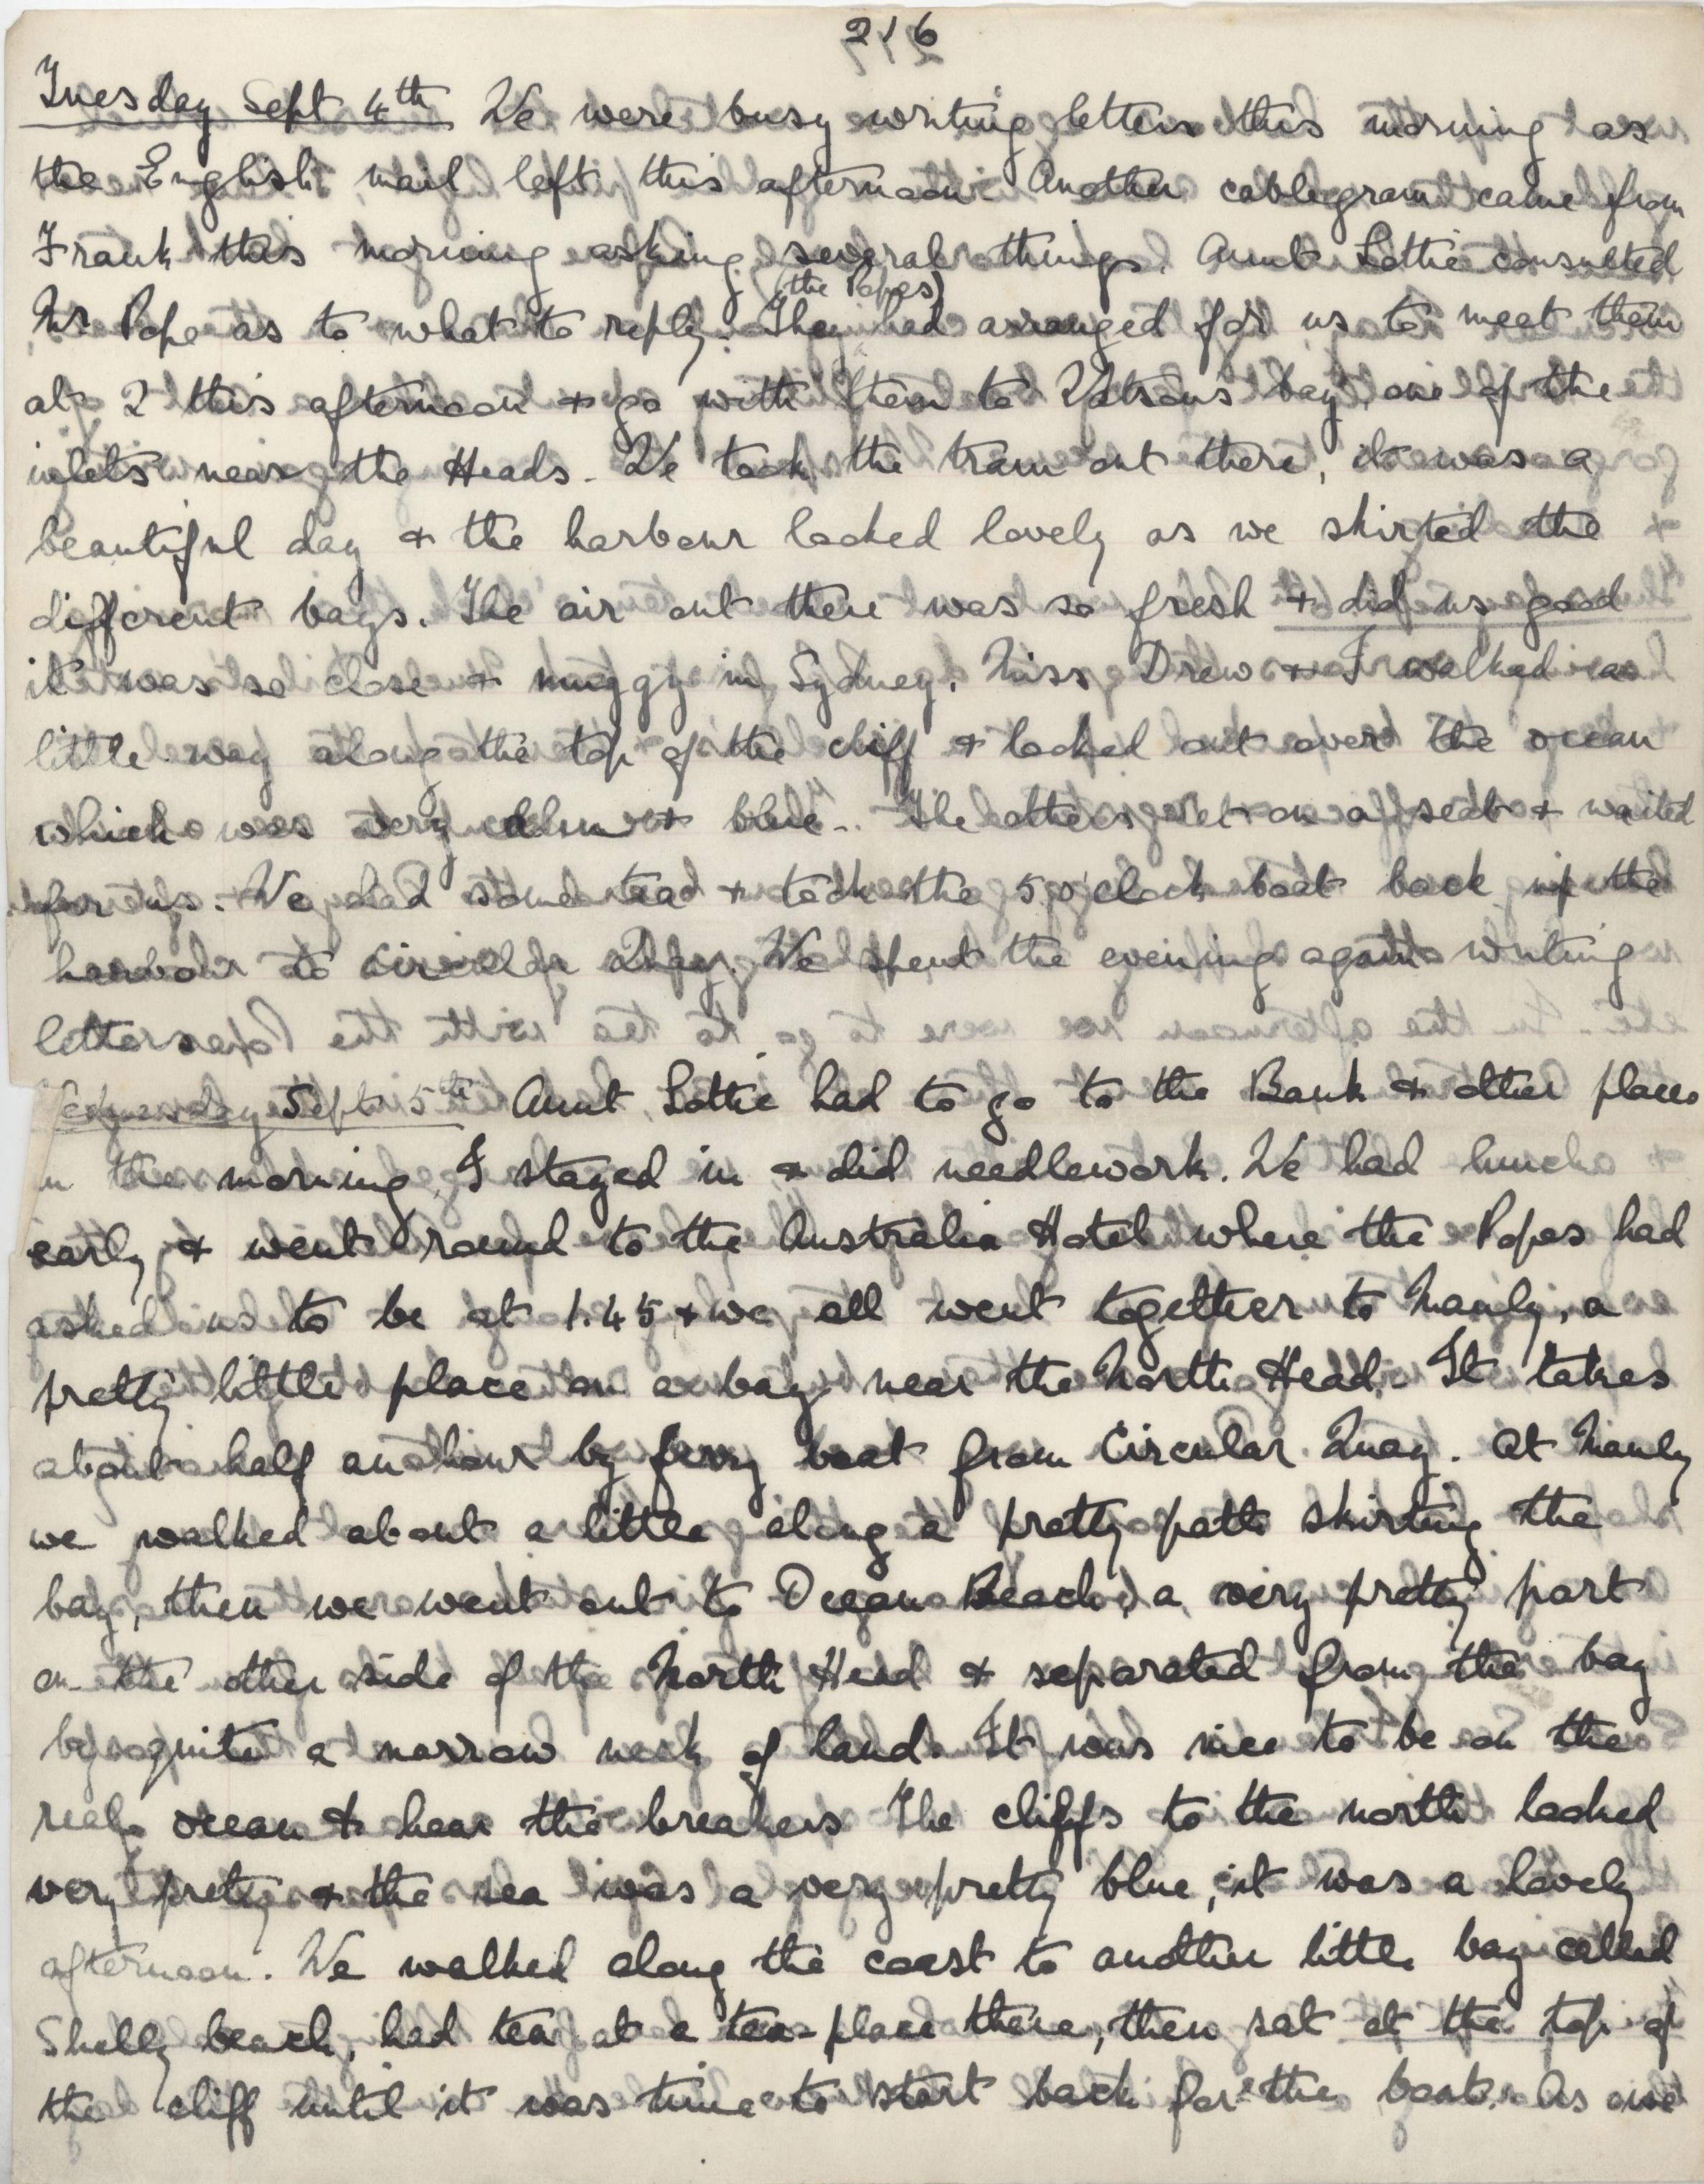 216
Tuesday Sept 4th We were busy writing letters this morning as
the English mail left this afternoon. Another cablegram came from
Frank this morning asking several things. Aunt Lottie consulted
(the Popes)
Mr Pope as to what to reply. They had arranged for us to meet them
at 2 this afternoon + go with them to Watsons bay, one of the
inlets near the Heads. We took the tram out there, it was a
beautiful day + the harbour looked lovely as we skirted the
different bays. The air out there was so fresh + did us good
it was so close + muggy in Sydney. Miss Drew + I walked a
little way along the top of the cliff + looked out over the ocean
which was very calm + blue. The others sat on a seat + waited
for us. We had some tea + took the 5 o'clock boat back up the
harbour to Circular Quay. We spent the evening again writing
letters
Wednesday Sept 5th Aunt Lottie had to go to the Bank + other places
in the morning, I stayed in + did needlework. We had lunch
early + went round to the Australia Hotel where the Popes had
asked us to be at 1.45 + we all went together to Manly, a
pretty little place on a bay near the North Head. It takes
about half an hour by ferry boat from Circular Quay. At Manly
we walked about a little along a pretty path skirting the
bay, then we went out to Ocean Beach, a very pretty part
on the other side of the North Head + separated from the bay
by quite a narrow neck of land. It was nice to be on the
real ocean + hear the breakers The cliffs to the north looked
very pretty + the sea was a very pretty blue, it was a lovely
afternoon. We walked along the coast to another little bay called
Shelly beach, had tea at a tea-place there, then sat at the top of
the cliff until it was time to start back for the boat. As we